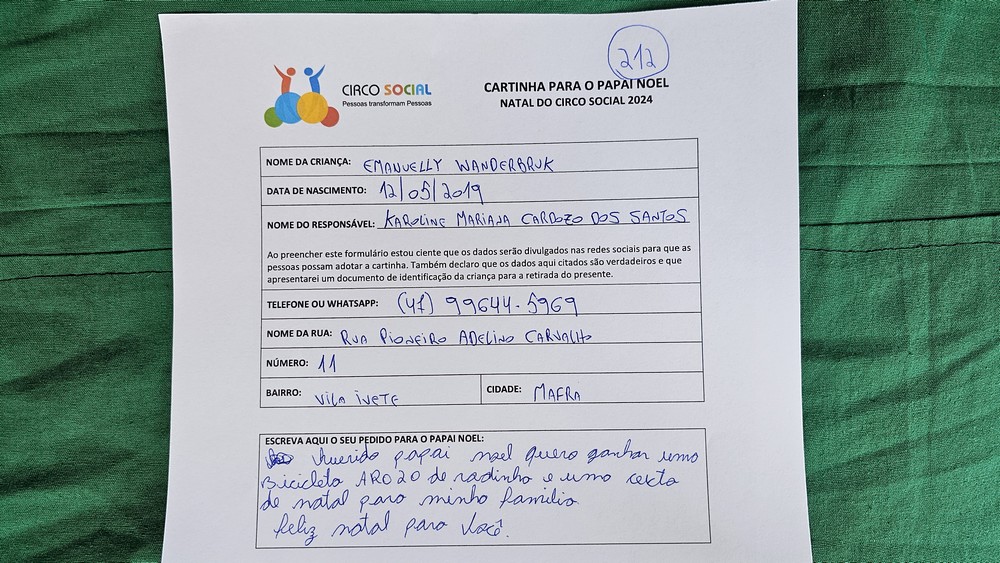 212
CIRCO SOCIAL
Pessoas transformam Pessoas
CARTINHA PARA O PAPAI NOEL
NATAL DO CIRCO SOCIAL 2024
NOME DA CRIANÇA: EMANUELLY WANDERBRUK
DATA DE NASCIMENTO: 12/05/2019
NOME DO RESPONSÁVEL: KAROLINE MARIANA CARDOZO DOS SANTOS
Ao preencher este formulário estou ciente que os dados serão divulgados nas redes sociais para que as
pessoas possam adotar a cartinha. Também declaro que os dados aqui citados são verdadeiros e que
apresentarei um documento de identificação da criança para a retirada do presente.
TELEFONE OU WHATSAPP: (47) 99644-5969
NOME DA RUA: RUA PIONEIRO ADELINO CARVALHO
NÚMERO: 11
BAIRRO: VILA IVETE CIDADE: MAFRA
ESCREVA AQUI O SEU PEDIDO PARA O PAPAI NOEL:
Querido papai noel quero ganhar uma
Bicicleta ARO 20 de radinho e uma cesta
de natal para minha familia
feliz natal para você!